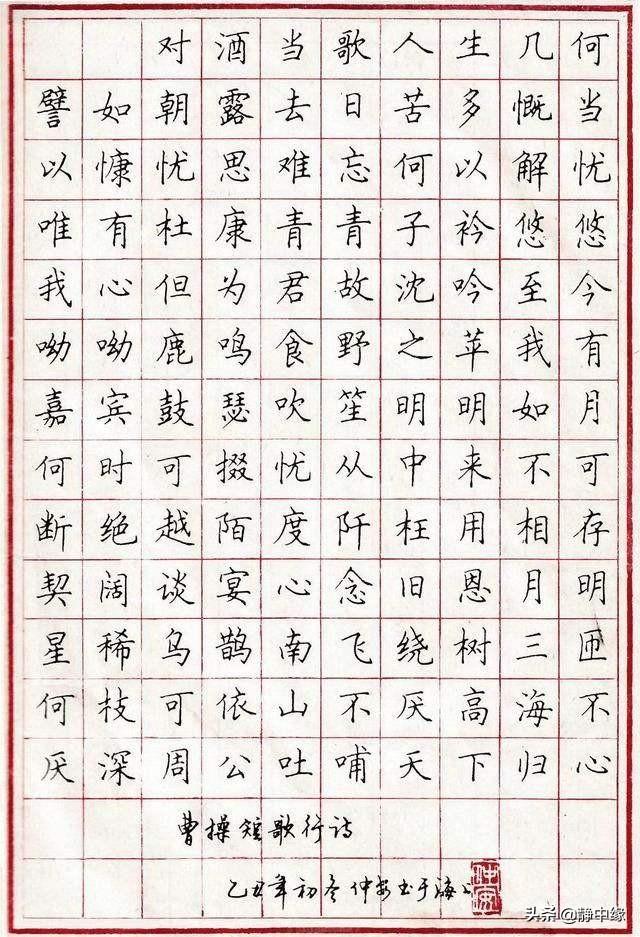 对酒当歌人生几何
譬如朝露去日苦多慨当
以慷忧思难忘何以解忧
唯有杜康青青子衿悠悠
我心但为君故沈吟至今
呦呦鹿鸣食野之苹我有
嘉宾鼓瑟吹笙明明如月
何时可掇忧从中来不可
断绝越陌度阡枉用相存
契阔谈宴心念旧恩月明
星稀乌鹊南飞绕树三匝
何枝可依山不厌高海不
厌深周公吐哺天下归心
曹操短歌行诗
乙丑年初冬仲书于海上
头条@静中缘